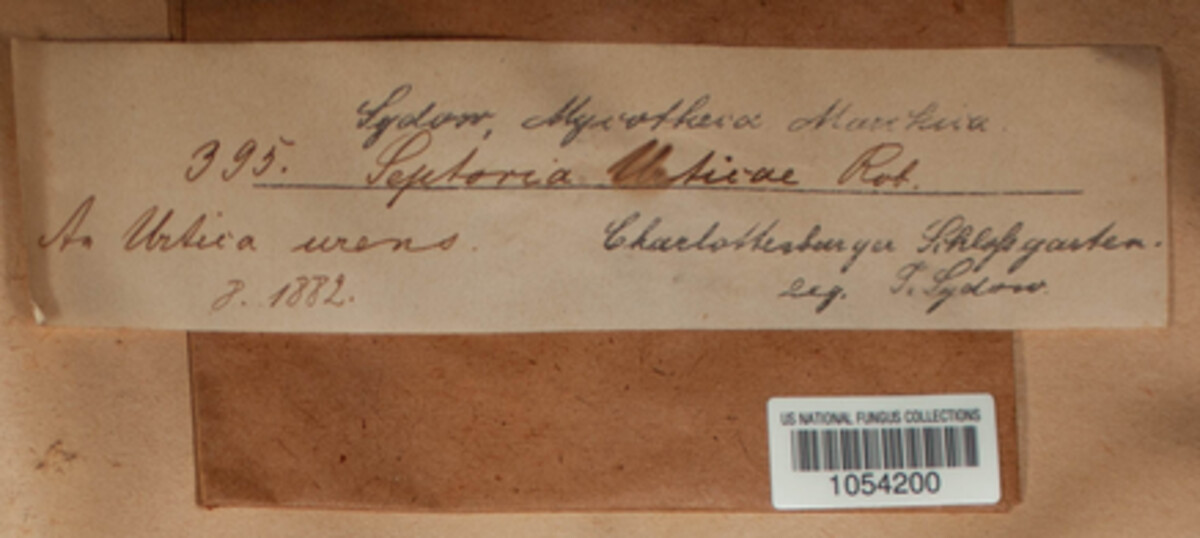 Sydow, Mycotheca Marchica.
395. Septoria Urticae Rob.
An Urtica urens.
Charlottenburger Schloßgarten.
8. 1882.
leg. P. Sydow.
US NATIONAL FUNGUS COLLECTIONS
1054200